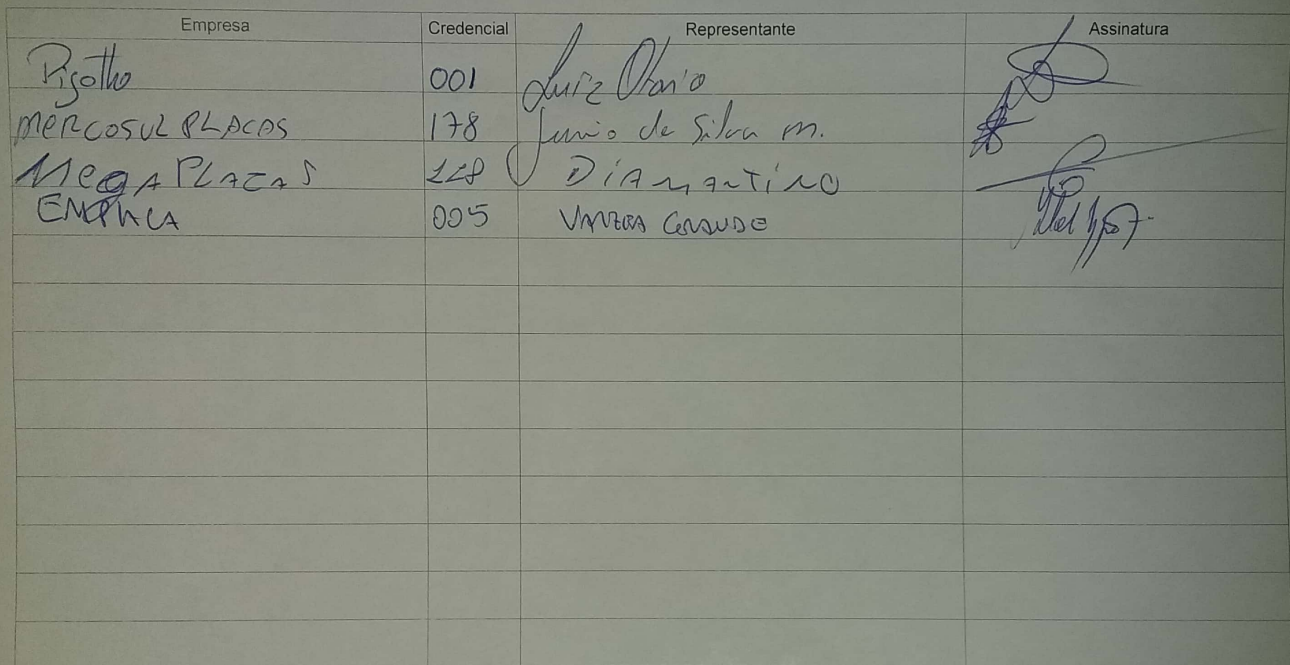 Empresa Credencial Representante Assinatura
001 Luiz Otavio
MERCOSUL PLACAS 178 Junio da Silva M.
MEGA PLACAS 128 DIAMANTINO
EMPLACA 005 VARZEA GRANDE